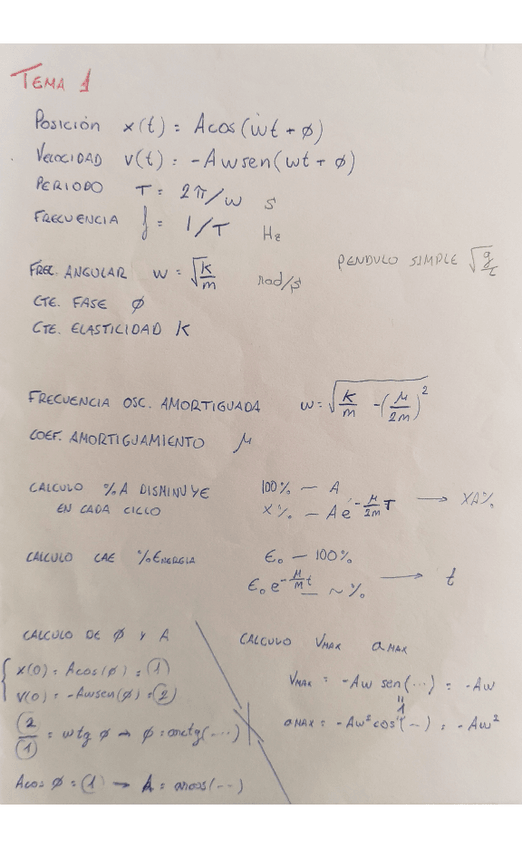 TEMA 1
POSICIÓN x(t) = Acos(wt + φ)
VELOCIDAD v(t) = -Awsen(wt + φ)
PERIODO T = 2π/w s
FRECUENCIA f = 1/T Hz
FREC. ANGULAR w = √(k/m) rad/s PENDULO SIMPLE √(g/L)
CTE. FASE φ
CTE. ELASTICIDAD K
FRECUENCIA OSC. AMORTIGUADA w = √(K/m - (μ/2m)²)
COEF. AMORTIGUAMIENTO μ
CALCULO %A DISMINUYE 100% — A
EN CADA CICLO X% — A e^(-μ/2m T) → XA%
CALCULO CAE %ENERGIA E₀ — 100%
E₀ e^(-μ/m t) — ~% → t
CALCULO DE φ Y A
x(0) = Acos(φ) = (1)
v(0) = -Awsen(φ) = (2)
(2)/(1) = wtg φ → φ = arctg(...)
Acos φ = (1) → A = arcos(...)
CALCULO VMAX aMAX
VMAX = -Aw sen(...) = -Aw
"
1
aMAX = -Aw² cos(...) = -Aw²